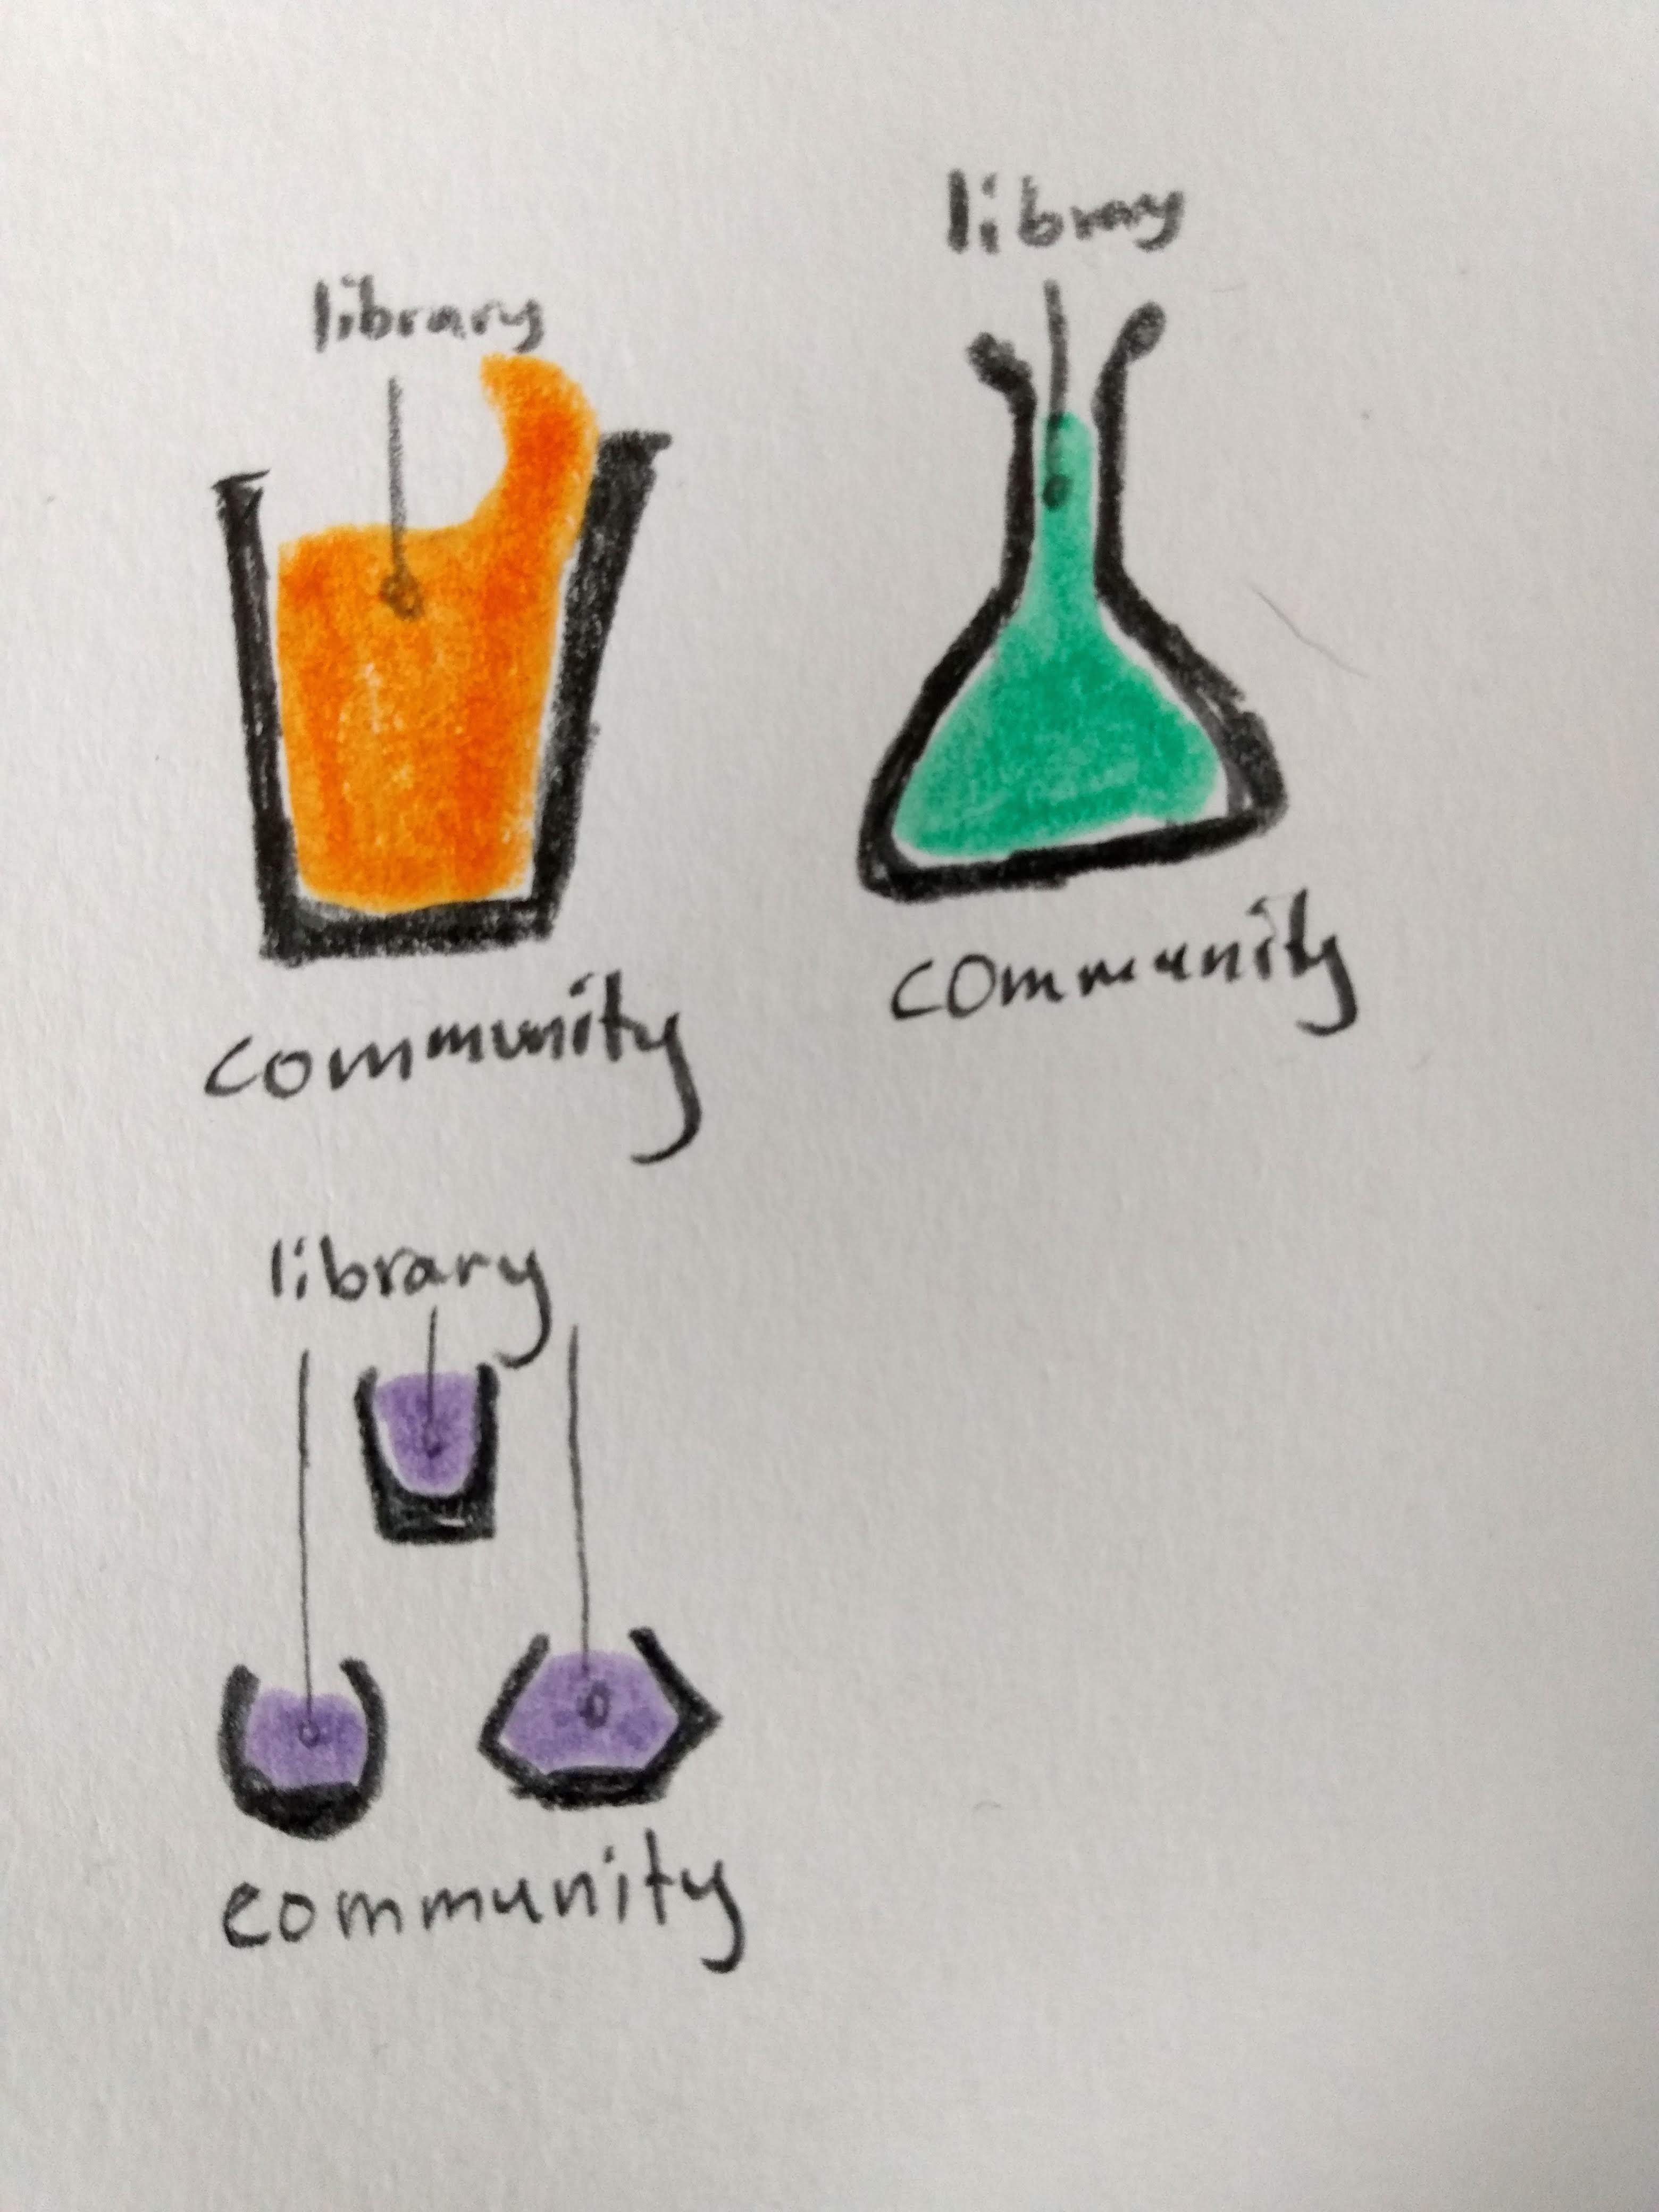 library
community
library
community
library
community